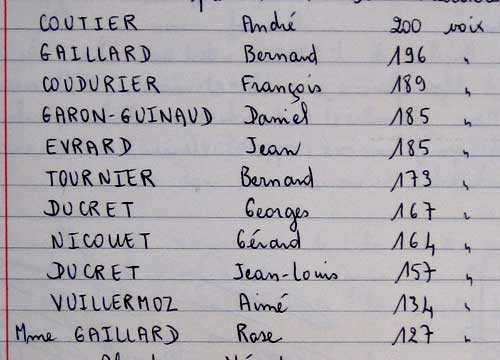 COUTIER André 200 voix
GAILLARD Bernard 196 "
COUDURIER François 189 "
GARON-GUINAUD Daniel 185 "
EVRARD Jean 185 "
TOURNIER Bernard 173 "
DUCRET Georges 167 "
NICOUET Gérard 164 "
DUCRET Jean-Louis 157 "
VUILLERMOZ Aimé 134 "
Mme GAILLARD Rose 127 "